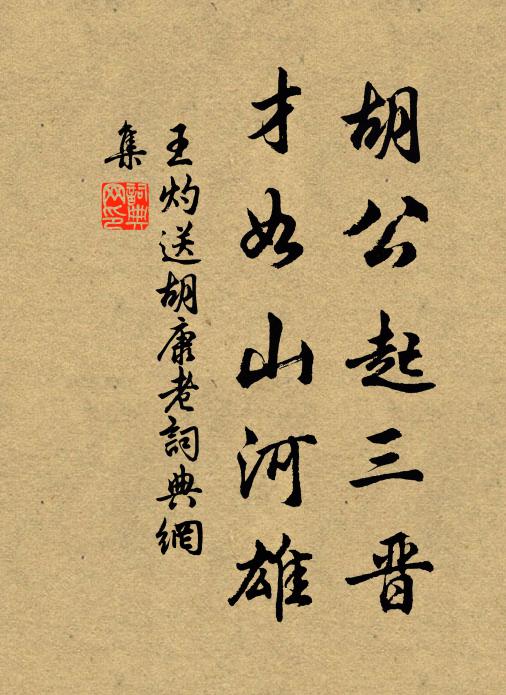 胡公起三晋
才如山河雄
王灼送胡康老詞典網
集
詞典網印